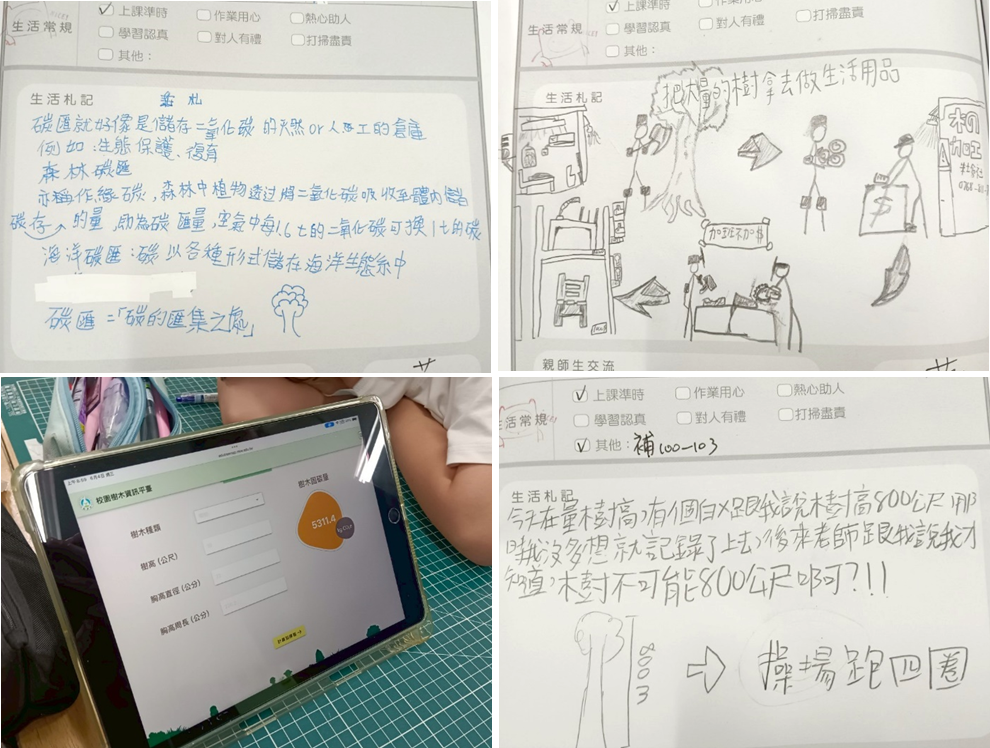 生活常規
上課準時
作業用心
熱心助人
學習認真
對人有禮
打掃盡責
其他：
生活札記
碳匯就好像是儲存二氧化碳的天然or人工的倉庫
例如：生態保護、復育
森林碳匯
亦稱作綠碳，森林中植物透过將二氧化碳吸收至體內儲
碳存的量，即為碳匯量，空氣中每1.6t的二氧化碳可換1t的碳
海洋碳匯：碳以各種形式儲在海洋生態系中
碳匯＝「碳的匯集之處」
生活常規
上課準時
作業用心
學習認真
對人有禮
打掃盡責
其他：
生活札記
把大量的樹拿去做生活用品
木的加工
$
加班不加薪
親師生交流
校園樹木資訊平臺
樹木種類
樹高 (公尺)
胸高直徑 (公分)
胸高周長 (公分)
樹木固碳量
5311.4
生活常規
上課準時
作業用心
熱心助人
學習認真
對人有禮
打掃盡責
其他：補100-103
生活札記
今天在量樹高，有個白X跟我說樹高800公尺那
時我沒多想就記錄了上去，後來老師跟我說我才
知道，樹不可能800公尺啊?!!
800m
操場跑四圈